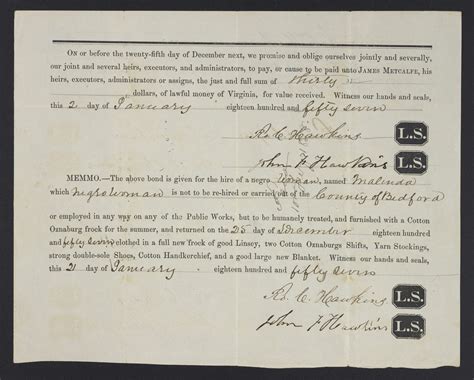 On or before the twenty-fifth day of December next, we promise and oblige ourselves jointly and severally,
our joint and several heirs, executors, and administrators, to pay, or cause to be paid unto JAMES METCALFE, his
heirs, executors, administrators or assigns, the just and full sum of thirty
dollars, of lawful money of Virginia, for value received. Witness our hands and seals,
this 2 day of January eighteen hundred and fifty seven
Ro. C. Hawkins L.S.
John F Hawkins L.S.
MEMMO.—The above bond is given for the hire of a negro woman, named Malinda
which negro woman is not to be re-hired or carried out of the County of Bedford
or employed in any way on any of the Public Works, but to be humanely treated, furnished with a Cotton
Oznaburg frock for the summer, and returned on the 25 day of December eighteen hundred
and fifty seven clothed in a full new frock of good Linsey, two Cotton Oznaburgs Shifts, Yarn Stockings,
strong double-sole Shoes, Cotton Handkerchief, and a good large new Blanket. Witness our hands and seals,
this 21 day of January eighteen hundred and fifty seven
Ro. C. Hawkins L.S.
John F Hawkins L.S.